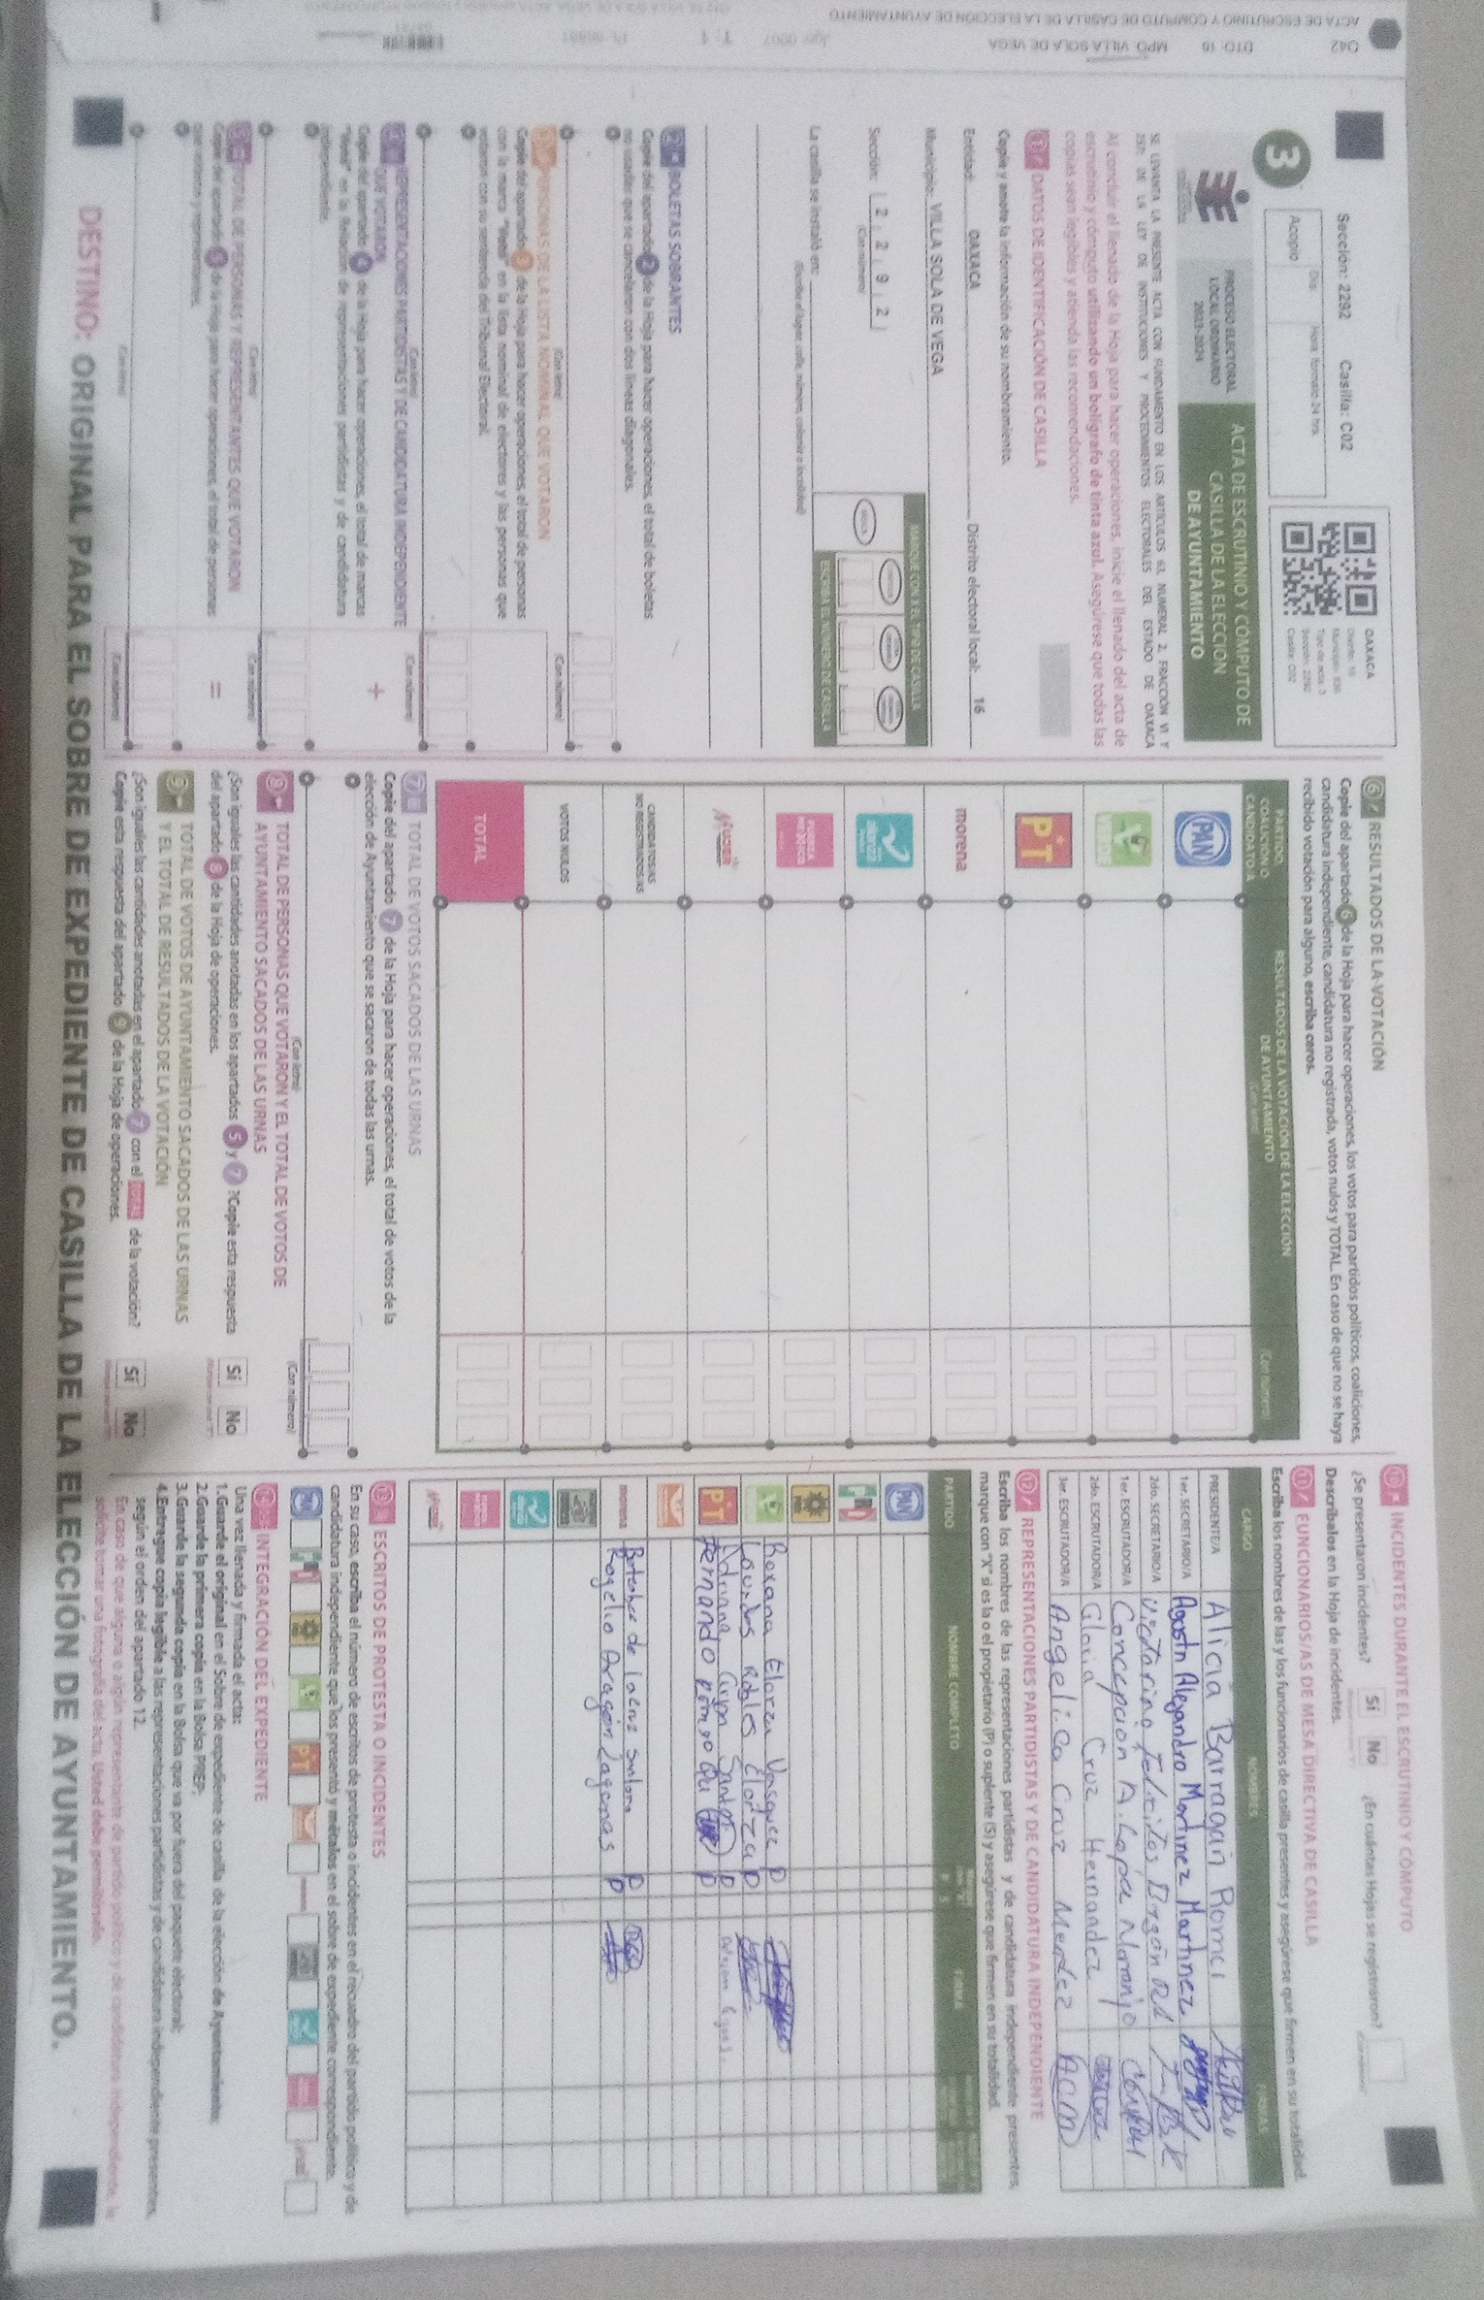 Sección: 2292 Casilla: C02
Día: Hora: formato 24 hrs.
Acopio
OAXACA
Tipo de acta: 3
Sección: 2292
Casilla: C02
3
PROCESO ELECTORAL
LOCAL ORDINARIO
2023-2024
ACTA DE ESCRUTINIO Y CÓMPUTO DE
CASILLA DE LA ELECCIÓN
DE AYUNTAMIENTO
SE LEVANTA LA PRESENTE ACTA CON FUNDAMENTO EN LOS ARTÍCULOS 63, NUMERAL 2, FRACCIÓN VI Y
257; DE LA LEY DE INSTITUCIONES Y PROCEDIMIENTOS ELECTORALES DEL ESTADO DE OAXACA
Al concluir el llenado de la Hoja para hacer operaciones, inicie el llenado del acta de
escrutinio y cómputo utilizando un bolígrafo de tinta azul. Asegúrese que todas las
copias sean legibles y atienda las recomendaciones.
1 DATOS DE IDENTIFICACIÓN DE CASILLA
Copie y anote la información de su nombramiento.
Entidad: OAXACA Distrito electoral local: 16
Municipio: VILLA SOLA DE VEGA
Sección: 2 2 9 2
(Con número)
MARQUE CON X EL TIPO DE CASILLA
ESCRIBA EL NÚMERO DE CASILLA
La casilla se instaló en:
(Escriba el lugar: calle, número, colonia o localidad)
2 BOLETAS SOBRANTES
Copie del apartado 2 de la Hoja para hacer operaciones, el total de boletas
no usadas que se cancelaron con dos líneas diagonales.
(Con letra) (Con número)
3 PERSONAS DE LA LISTA NOMINAL QUE VOTARON
Copie del apartado 3 de la Hoja para hacer operaciones, el total de personas
con la marca "Votó" en la lista nominal de electores y las personas que
votaron con su sentencia del Tribunal Electoral.
(Con letra) (Con número)
4 REPRESENTACIONES PARTIDISTAS Y DE CANDIDATURA INDEPENDIENTE
QUE VOTARON
Copie del apartado 4 de la Hoja para hacer operaciones, el total de marcas
"Votó" en la Relación de representaciones partidistas y de candidatura
independiente.
+
(Con letra) (Con número)
5 TOTAL DE PERSONAS Y REPRESENTANTES QUE VOTARON
Copie del apartado 5 de la Hoja para hacer operaciones, el total de personas
que votaron y representantes.
=
(Con letra) (Con número)
6 RESULTADOS DE LA VOTACIÓN
Copie del apartado 6 de la Hoja para hacer operaciones, los votos para partidos políticos, coaliciones,
candidatura independiente, candidatura no registrada, votos nulos y TOTAL. En caso de que no se haya
recibido votación para alguno, escriba ceros.
PARTIDO,
COALICIÓN O
CANDIDATO/A
RESULTADOS DE LA VOTACIÓN DE LA ELECCIÓN
DE AYUNTAMIENTO
(Con letra)
(Con número)
PAN
VERDE
PT
morena
nueva alianza
FUERZA MEXICO
MUJER
CANDIDATOS/AS
NO REGISTRADOS/AS
VOTOS NULOS
TOTAL
7 TOTAL DE VOTOS SACADOS DE LAS URNAS
Copie del apartado 7 de la Hoja para hacer operaciones, el total de votos de la
elección de Ayuntamiento que se sacaron de todas las urnas.
(Con letra) (Con número)
8 TOTAL DE PERSONAS QUE VOTARON Y EL TOTAL DE VOTOS DE
AYUNTAMIENTO SACADOS DE LAS URNAS
¿Son iguales las cantidades anotadas en los apartados 5 y 7 ?Copie esta respuesta
del apartado 8 de la Hoja de operaciones.
Sí No
9 TOTAL DE VOTOS DE AYUNTAMIENTO SACADOS DE LAS URNAS
Y EL TOTAL DE RESULTADOS DE LA VOTACIÓN
¿Son iguales las cantidades anotadas en el apartado 7 con el TOTAL de la votación?
Copie esta respuesta del apartado 9 de la Hoja de operaciones.
Sí No
10 INCIDENTES DURANTE EL ESCRUTINIO Y CÓMPUTO
¿Se presentaron incidentes? Sí No ¿En cuántas Hojas se registraron?
Descríbalos en la Hoja de incidentes.
11 FUNCIONARIOS/AS DE MESA DIRECTIVA DE CASILLA
Escriba los nombres de las y los funcionarios de casilla presentes y asegúrese que firmen en su totalidad.
CARGO NOMBRES FIRMAS
PRESIDENTE/A Alicia Barragán Romci
1er. SECRETARIO/A Agostn Alejandro Martinez Martinez
2do. SECRETARIO/A Victorino Felicitos
1er. ESCRUTADOR/A Concepcion A. Lopez Naranjo
2do. ESCRUTADOR/A Gloria Cruz Hernandez
3er. ESCRUTADOR/A Angelica Cruz Mendez ACM
12 REPRESENTACIONES PARTIDISTAS Y DE CANDIDATURA INDEPENDIENTE
Escriba los nombres de las representaciones partidistas y de candidatura independiente presentes,
marque con "X" si es la o el propietario (P) o suplente (S) y asegúrese que firmen en su totalidad.
PARTIDO NOMBRE COMPLETO FIRMA
PAN
PRI
PRD
VERDE Roxana Elorza Vasquez P
Lourdes Robles Elorza P
PT Adriana Santos P
Fernando P
morena P
Rogelio Aragón Lagunas P
nueva alianza
MUJER
13 ESCRITOS DE PROTESTA O INCIDENTES
En su caso, escriba el número de escritos de protesta o incidentes en el recuadro del partido político y de
candidatura independiente que los presentó y métalos en el sobre de expediente correspondiente.
14 INTEGRACIÓN DEL EXPEDIENTE
Una vez llenada y firmada el acta:
1.Guarde el original en el Sobre de expediente de casilla de la elección de Ayuntamiento;
2.Guarde la primera copia en la Bolsa PREP;
3.Guarde la segunda copia en la Bolsa que va por fuera del paquete electoral;
4.Entregue copia legible a las representaciones partidistas y de candidatura independiente presentes,
según el orden del apartado 12.
En caso de que alguna o algún representante de partido político y de candidatura independiente, le
solicite tomar una fotografía del acta, Usted debe permitírselo.
DESTINO: ORIGINAL PARA EL SOBRE DE EXPEDIENTE DE CASILLA DE LA ELECCIÓN DE AYUNTAMIENTO.
042 DTO: 16 MPO: VILLA SOLA DE VEGA
ACTA DE ESCRUTINIO Y CÓMPUTO DE CASILLA DE LA ELECCIÓN DE AYUNTAMIENTO